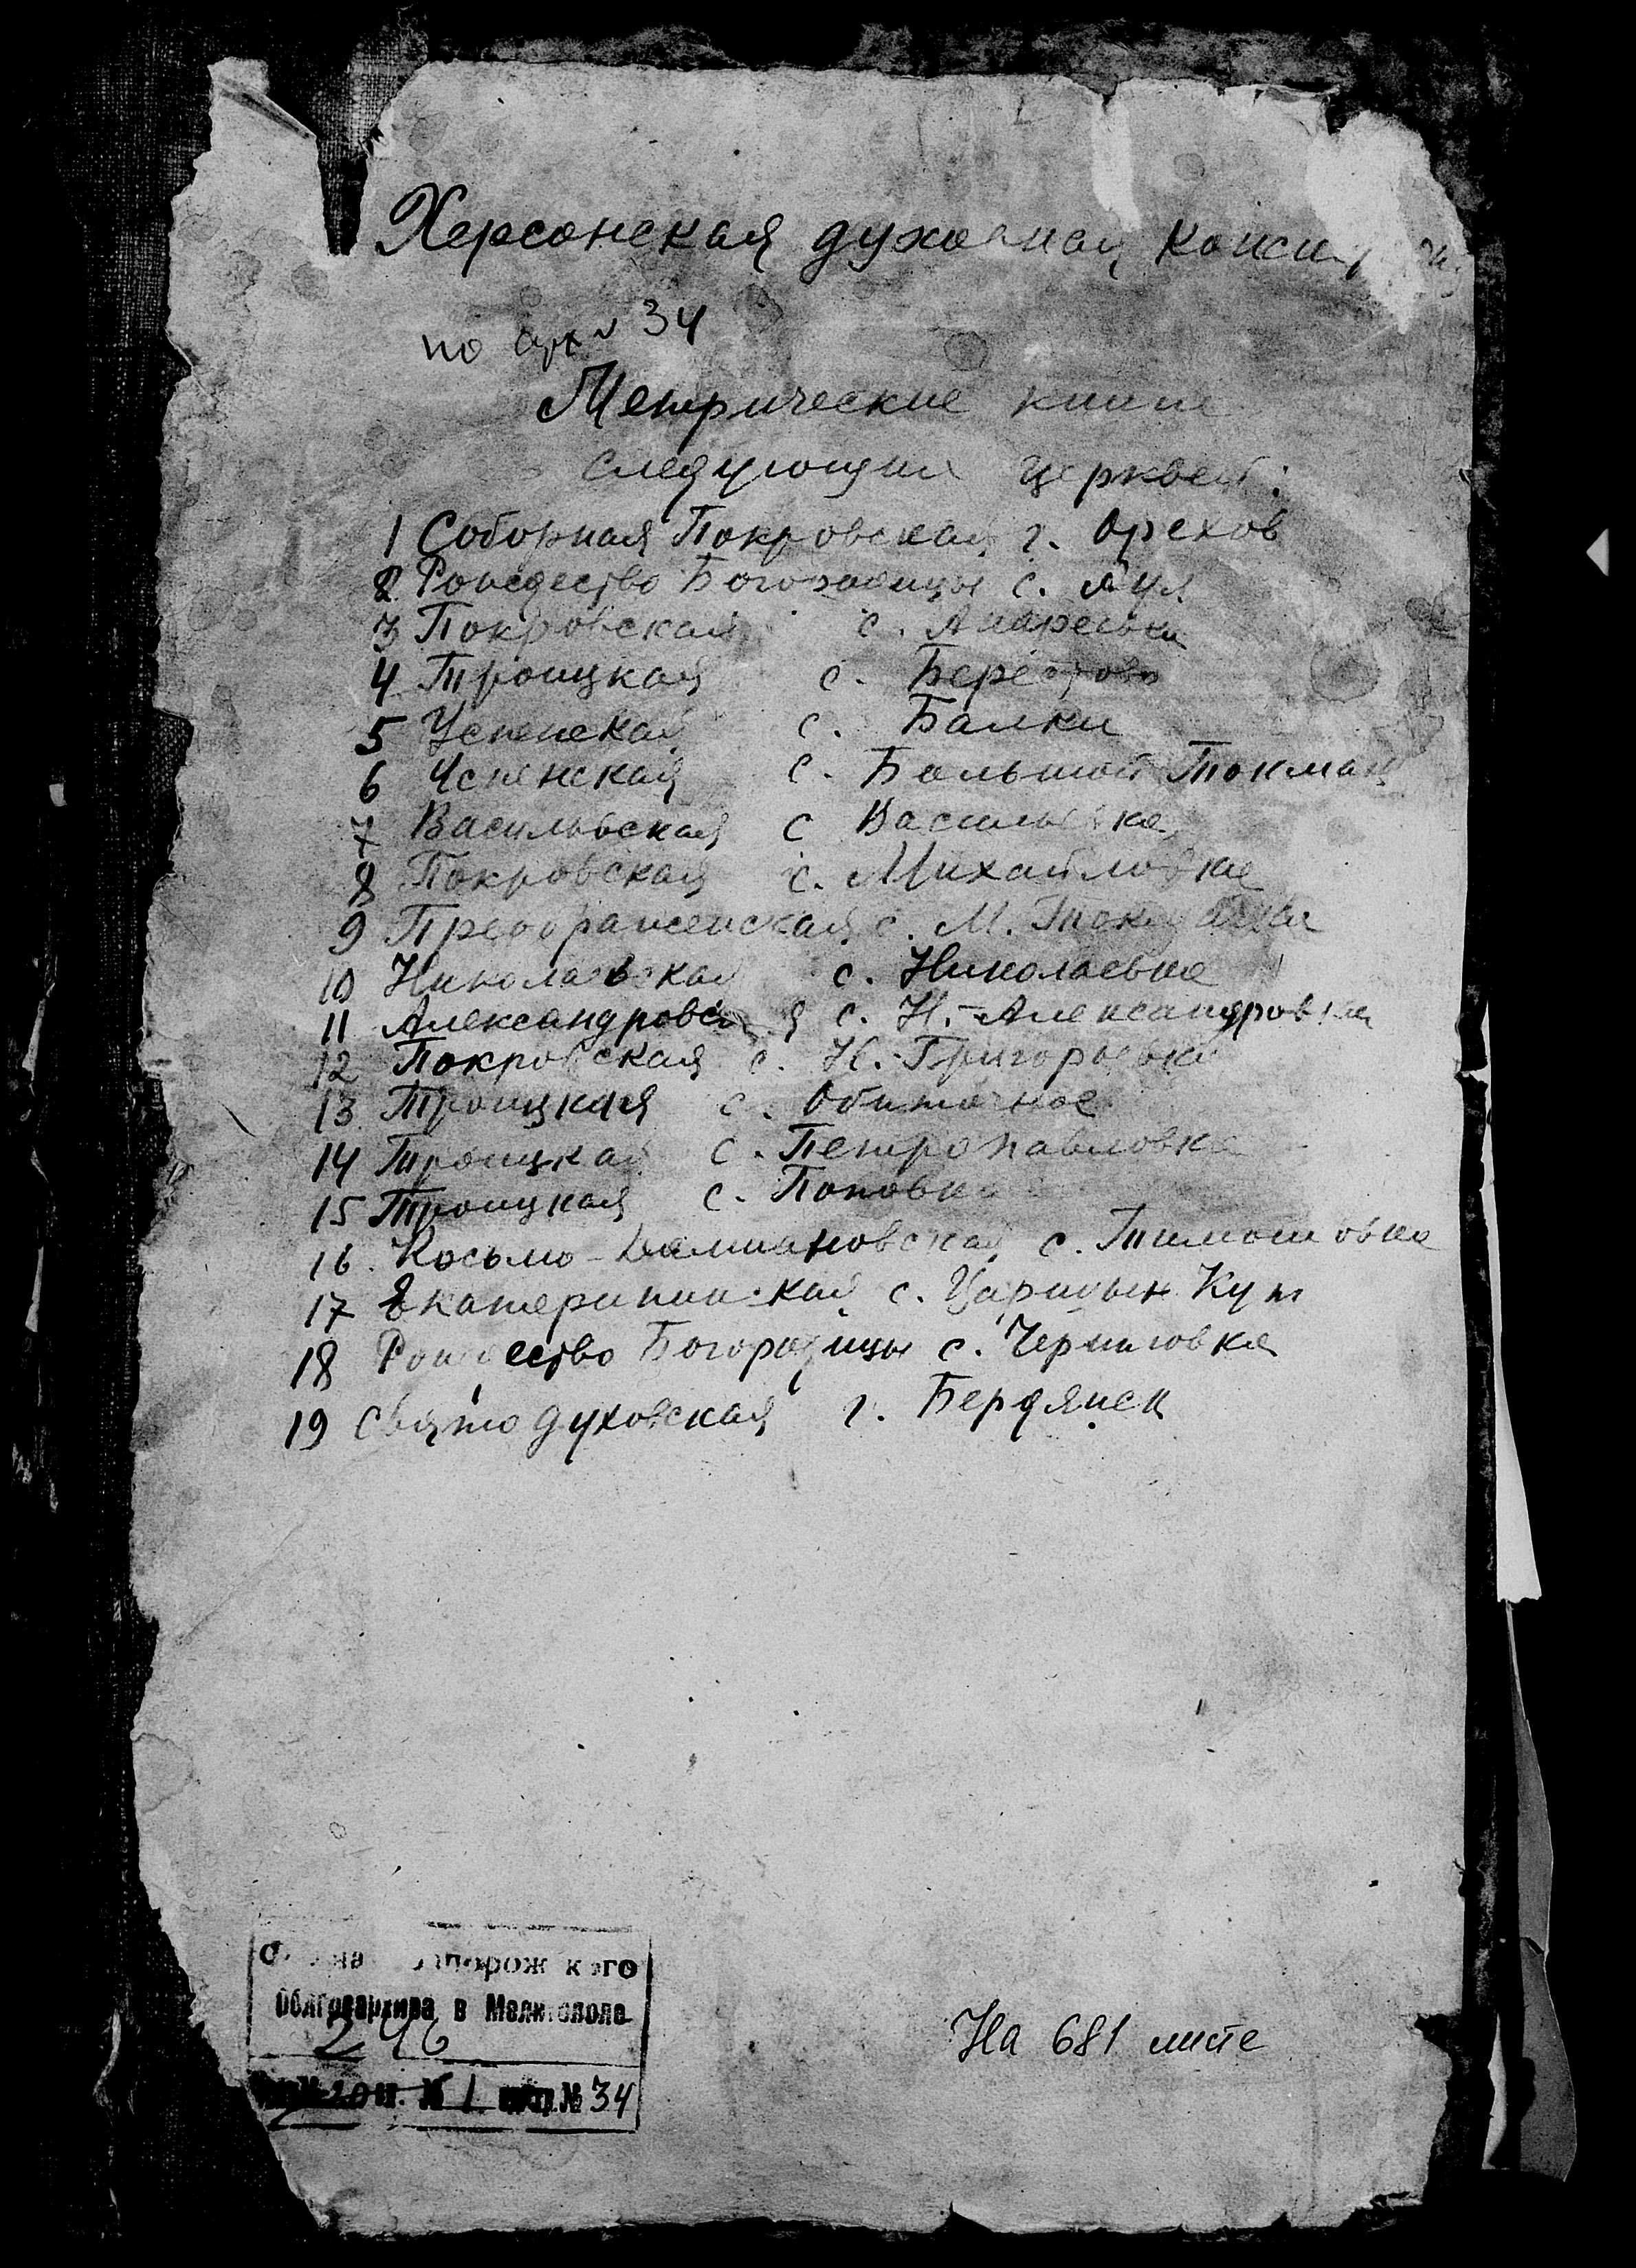 Херсонская духовная
по арх № 34
Метрические книги
следующих церквей:
1 Соборная Покровская г. Орехов
2 Рождество Богородицы с.
3 Покровская с. Андреевка
4 Троицкая с. Берестово
5 Успенская с. Балки
6 Успенская с. Большой Токмак
7 Васильевская с Васильевка
8 Покровская с. Михайловка
9 Преображенская с. М. Токмачка
10 Николаевская с. Николаевка
11 Александровская с. Н.-Александровка
12 Покровская с. Н.-Григорьевка
13 Троицкая с. Обиточное
14 Троицкая с. Петропавловка
15 Троицкая с. Поповка
16. Косьмо-Дамиановская с. Тимошовка
17 Екатерининская с. Царицын Кут
18 Рождество Богородицы с. Черниговка
19 Святодуховская г. Бердянск
Облгосархива в Мелитополе
246
№ 1 № 34
На 681 листе